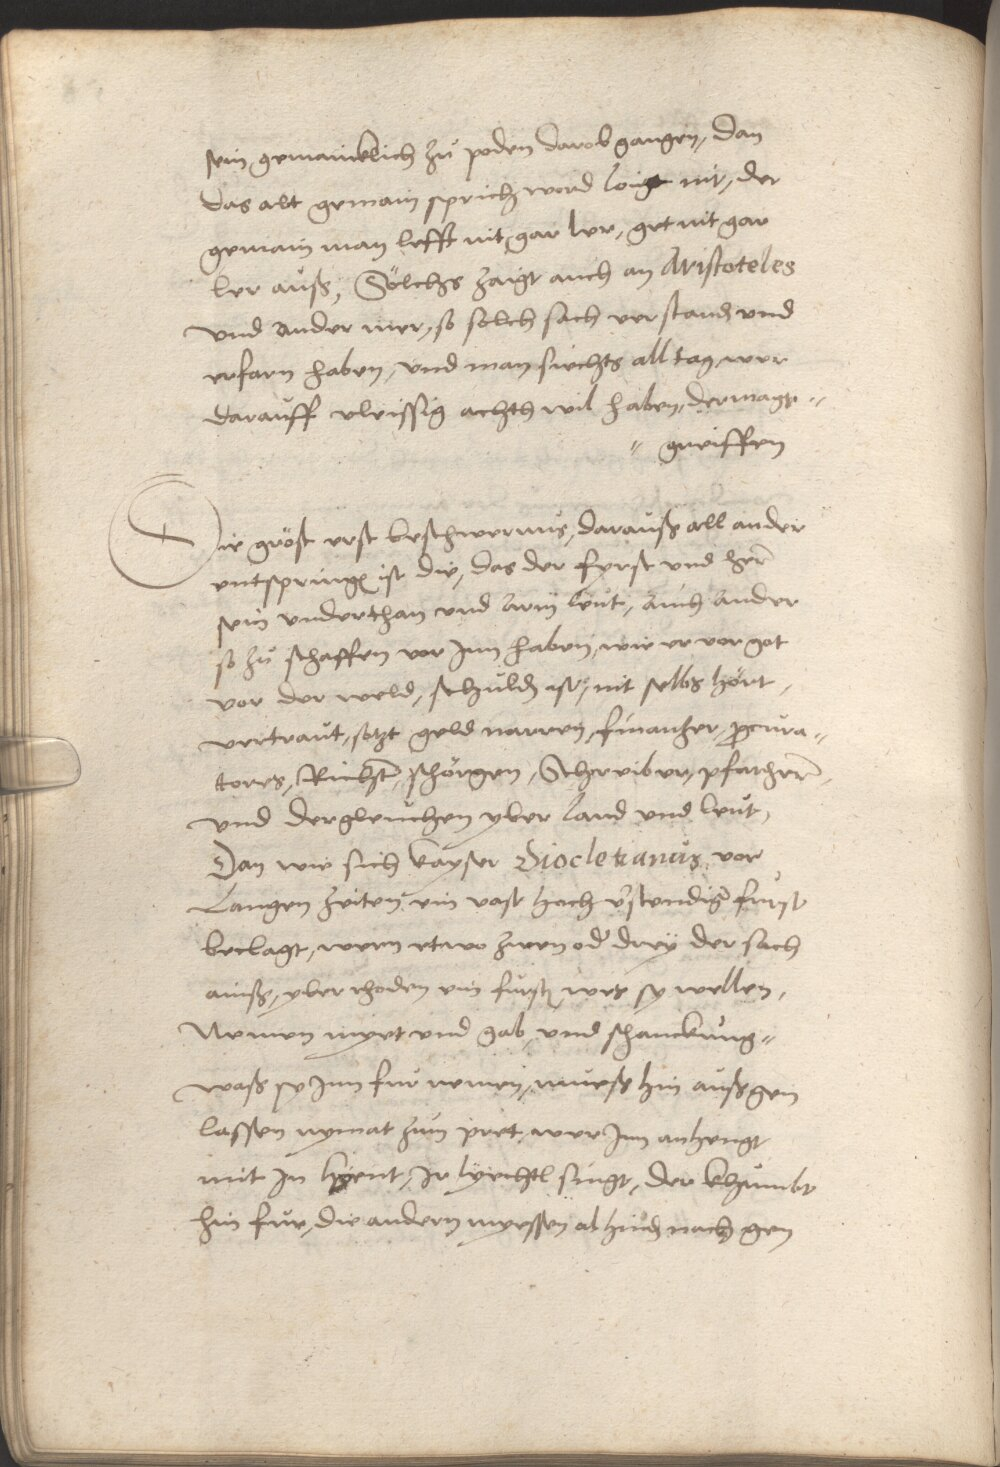 sein gemaincklich zů poden darob gangen, dan
das alt gemain sprichword loigt nit, der
gemain man lefft nit gar ler, get nit gar
ler auß, Sölchs zaigt auch an Aristoteles
vnd ander mer, so solch sach verstand vnd
erfarn haben, vnd man siechts all tag, wer
darauff vleissig achth wil haben, der magt
greiffen
Die gröst erst beschwernus, darauß all ander
entspringt ist die, das der fyrst vnd her
sein vnderthan vnd arm leut, auch ander
so zů schaffen vor jm haben, wie er vor got
vor der weld, schuldig ist, nit selbs hört,
vertraut, setzt geld narren, finantzer, procura
tores, Richter, schörgen, Schreiber, pfarherr,
vnd dergleuchen yber land vnd leut,
Dan wie sich kayser Diocletianus vor
Langen zeiten ein vast hoch verstendiger furst
beclagt, wenn etwo zwen oder drey der sach
ainß, yberrhoden ein furstn wes sy wellen,
Nemen myet vnd gab, vnd schanckung
waß sy jm fur nemen, mueß hin auß gen
lassen nymat zum pret, wer jm anhengt
mit in hyent, Ir lyedtl singt, der khumbt
hin fur, die andern myessen al hind nach gen